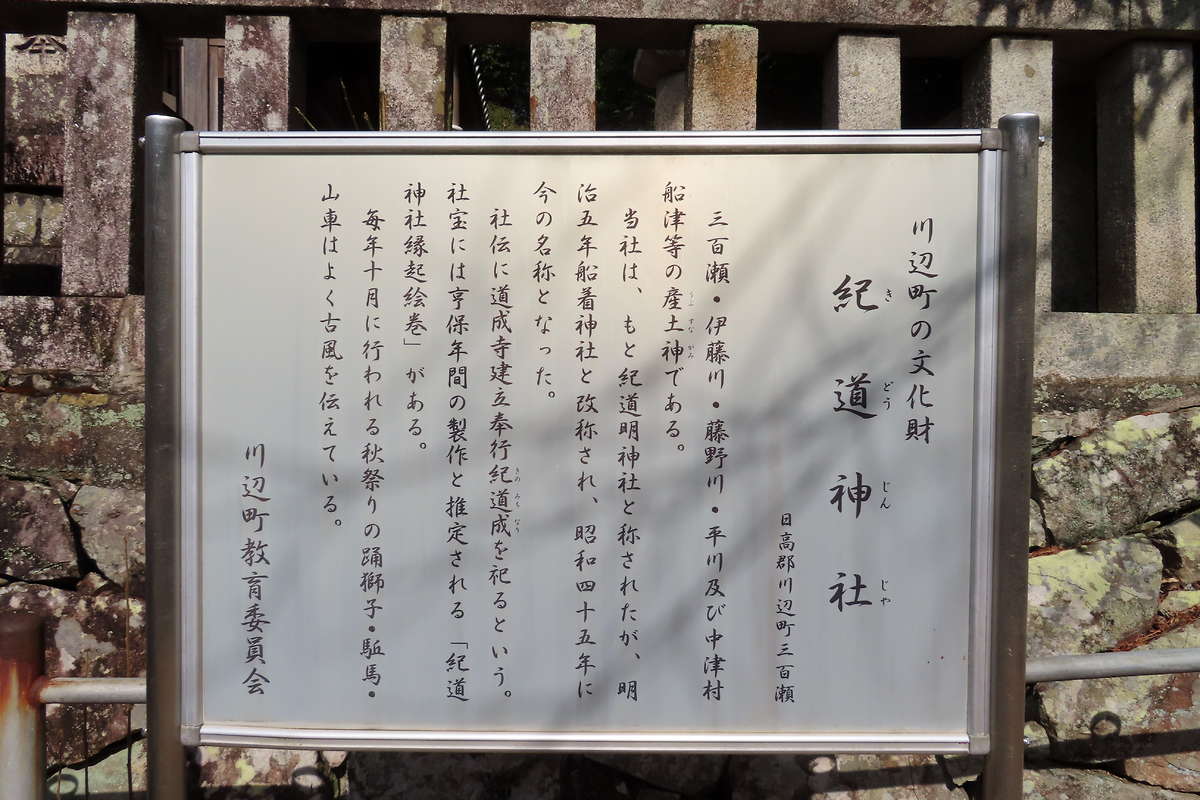 川辺町の文化財
紀道神社
きどうじんじゃ
日高郡川辺町三百瀬
三百瀬・伊藤川・藤野川・平川及び中津村
船津等の産土神である。
うぶすながみ
当社は、もと紀道明神社と称されたが、明
治五年船着神社と改称され、昭和四十五年に
今の名称となった。
社伝に道成寺建立奉行紀道成を祀るという。
きのみちなり
社宝には亨保年間の製作と推定される「紀道
神社縁起絵巻」がある。
毎年十月に行われる秋祭りの踊獅子・駈馬・
山車はよく古風を伝えている。
川辺町教育委員会